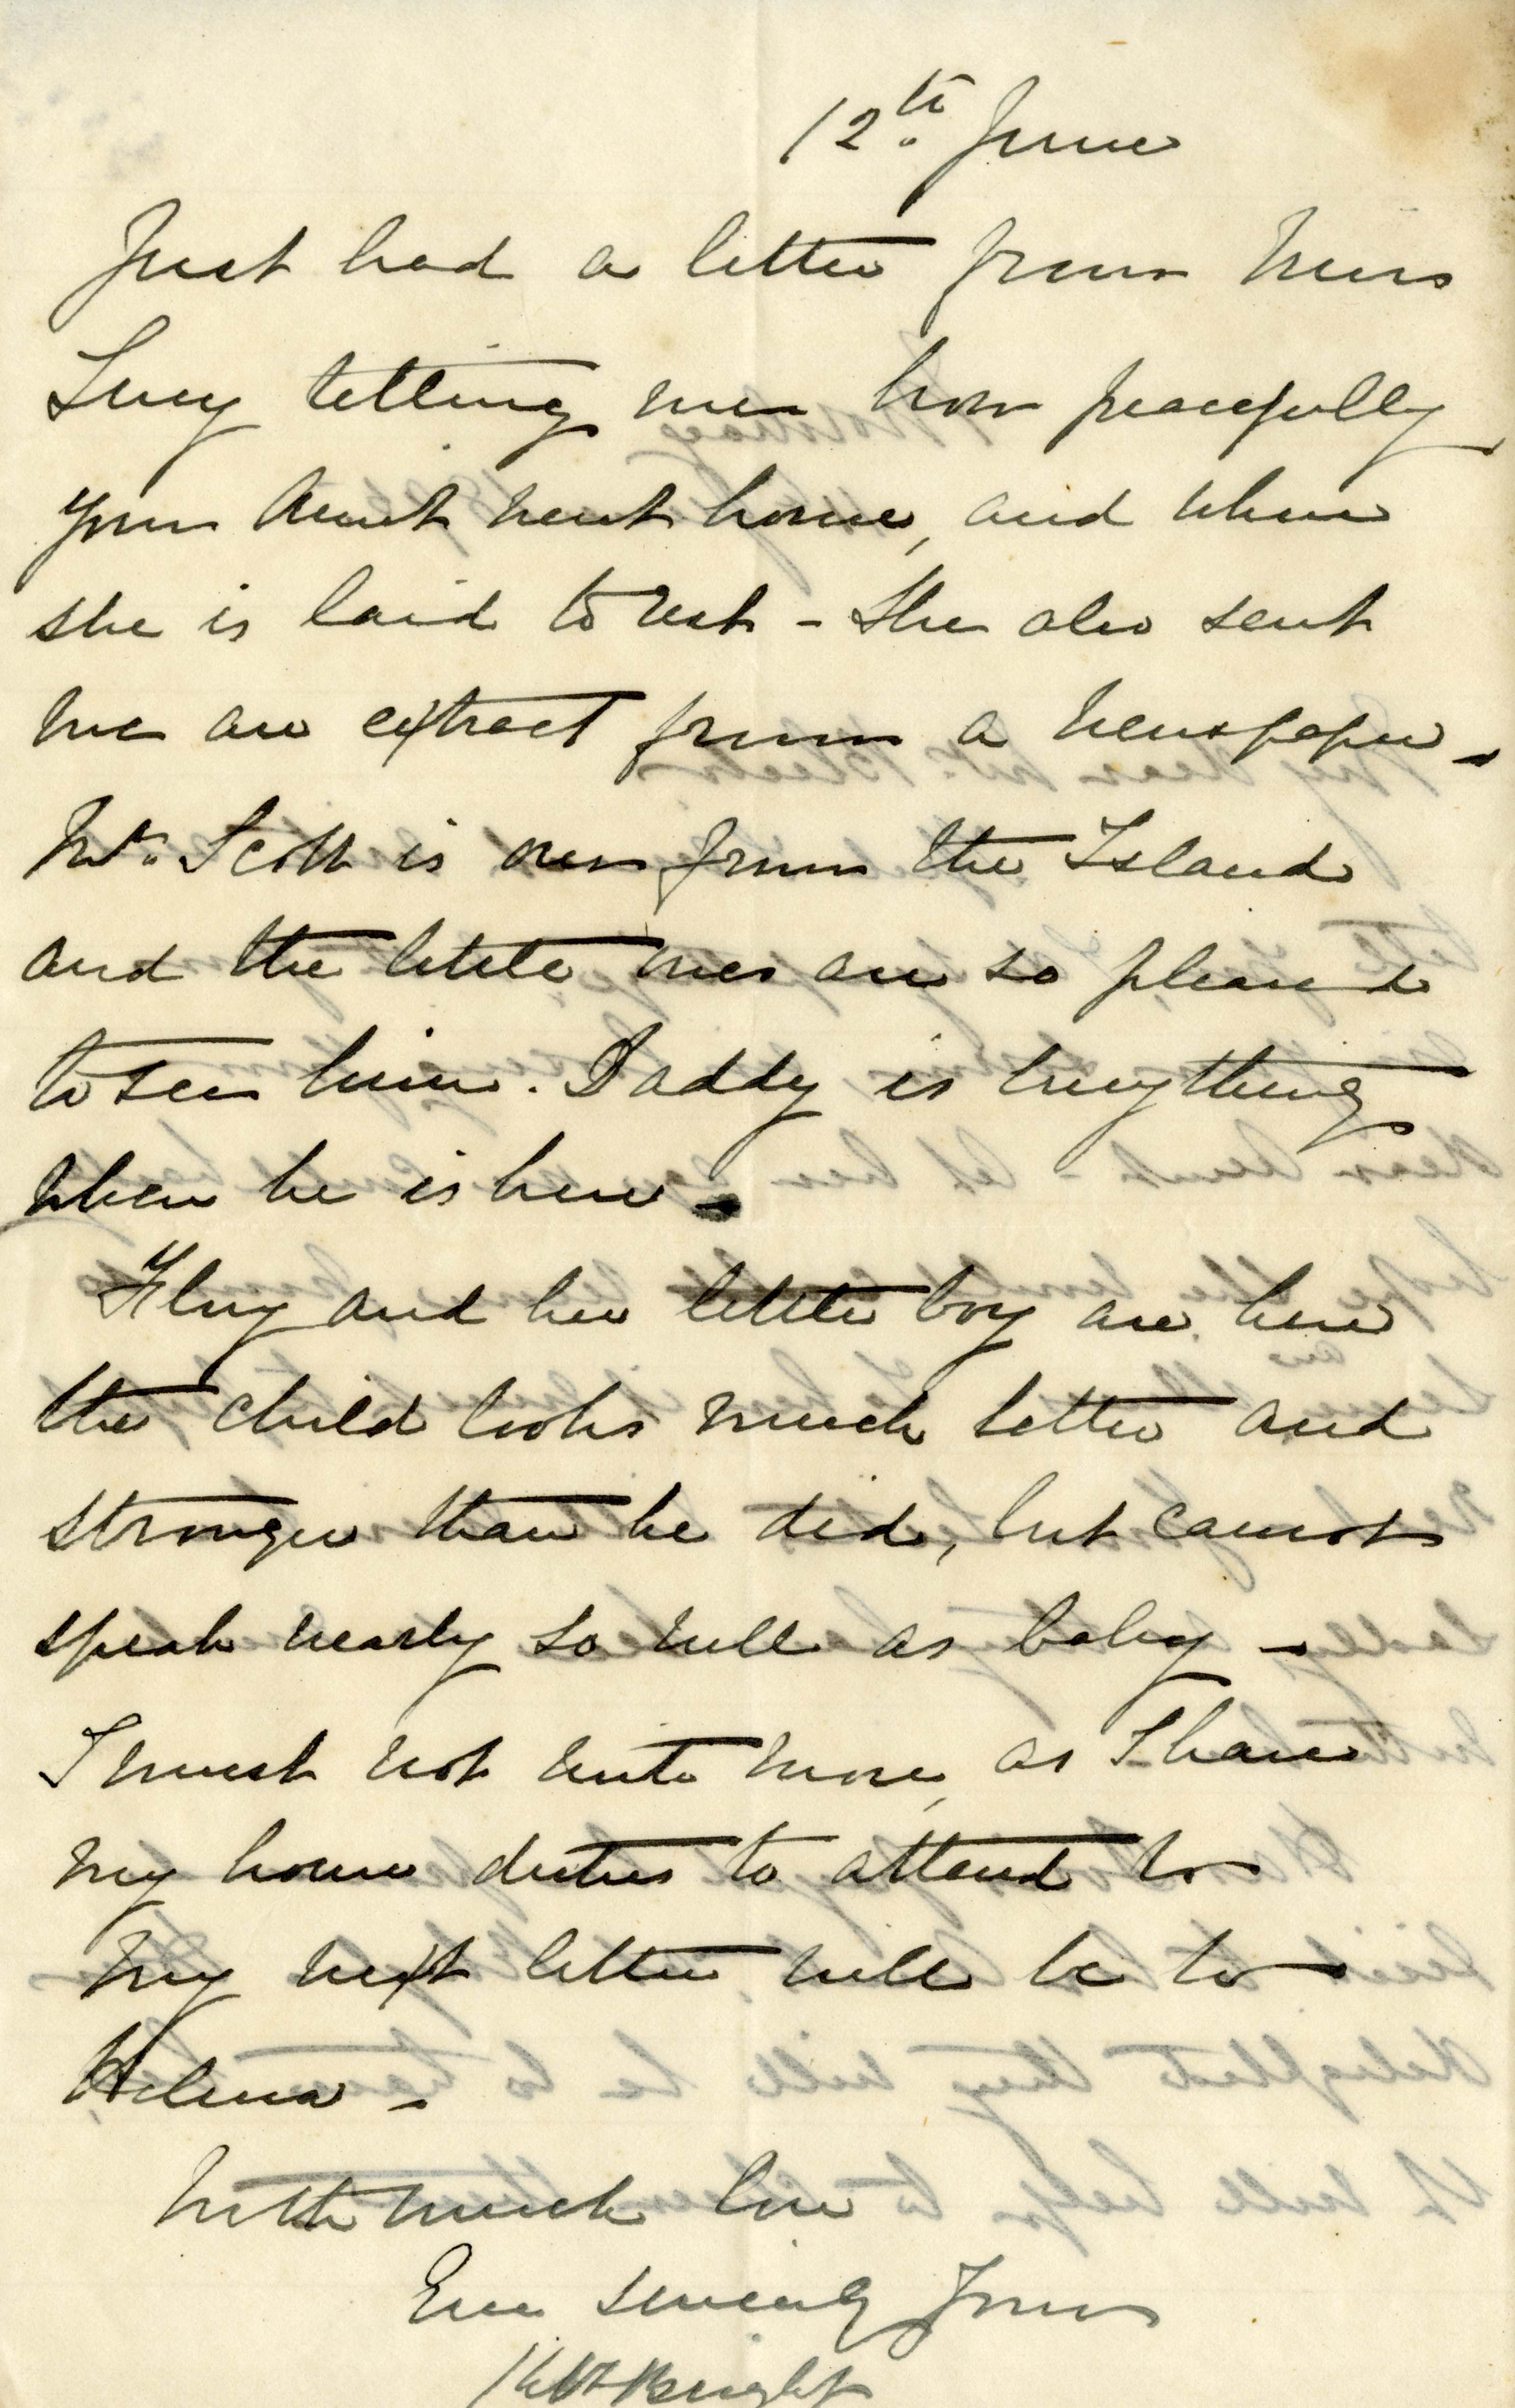 12th. June
Just had a letter from Miss
Lucy telling me how peacefully
your Aunt went home, and where
she is laid to rest - She also sent
me an extract from a newspaper -
Mr. Scott is over from the Island
and the little ones are so pleased
to see him. Daddy is everything
when he is here -
and her little boy are here
the child looks much better and
stronger than he did, but cannot
speak nearly so well as baby -
I must not write more, as I have
my home duties to attend to
My next letter will be to
Helena -
With much love
Ever sincerely Yours
Bright